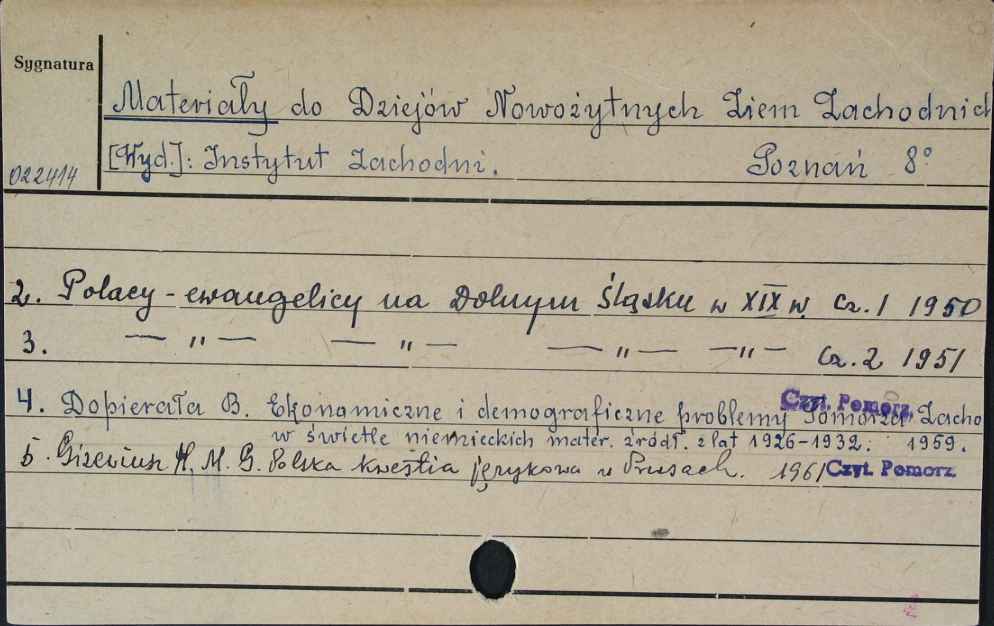 Sygnatura
Materiały do Dziejów Nowożytnych Ziem Zachodnich
[Wyd.]: Instytut Zachodni. Poznań 8°
022414
2. Polacy - ewangelicy na Dolnym Śląsku w XIX w. Cz. 1 1950
3. — " — — " — — " — — " — Cz. 2 1951
4. Dopierała B. Ekonomiczne i demograficzne problemy Pomorza Zacho
Czyt. Pomorz.
w świetle niemieckich mater. źródł. z lat 1926-1932. 1959.
5. Gizewiusz H. M. G. Polska kwestia językowa w Prusach. 1961 Czyt. Pomorz.